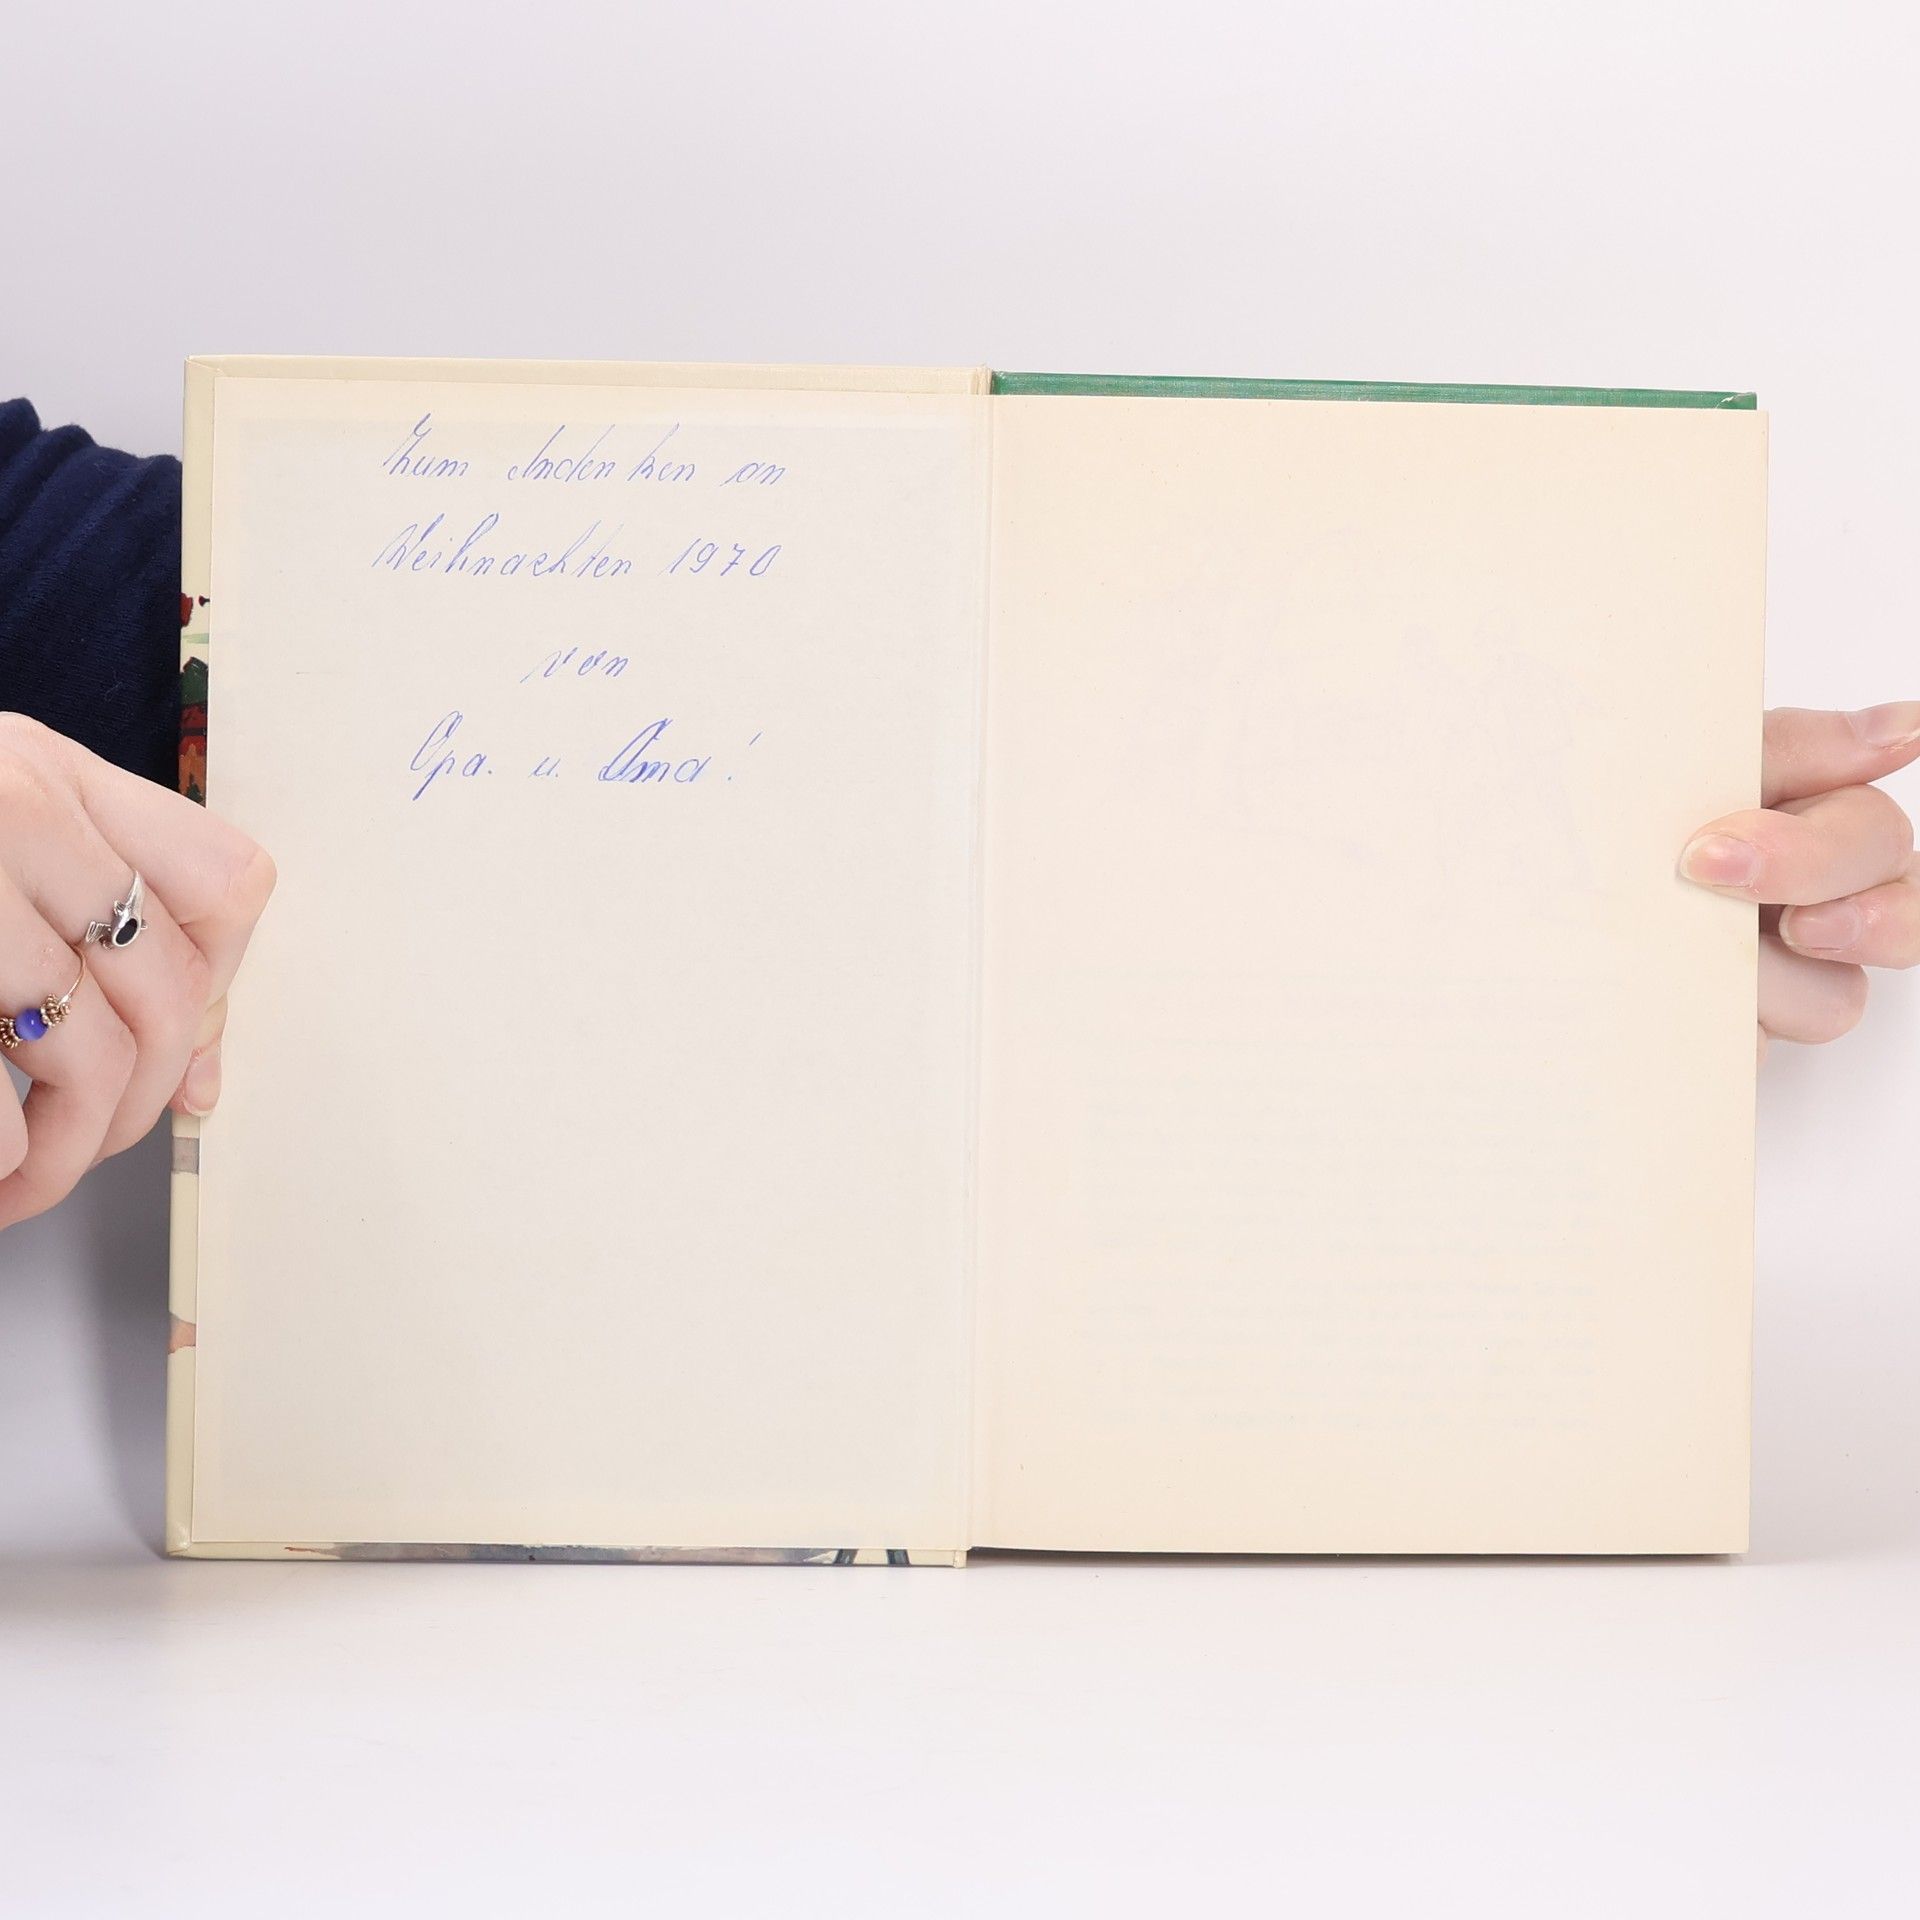 Zum Andenken an
Weihnachten 1970
von
Opa. u. Oma!